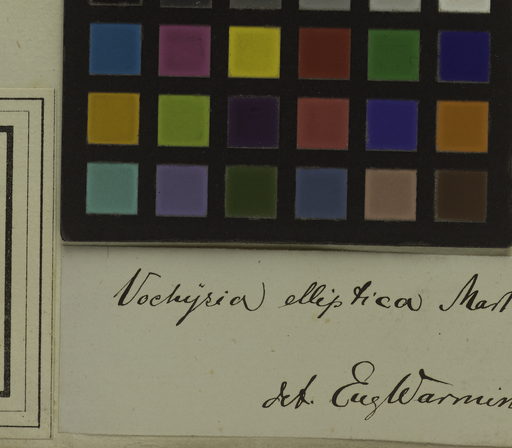 Vochysia elliptica Mart
det. Eug Warmin